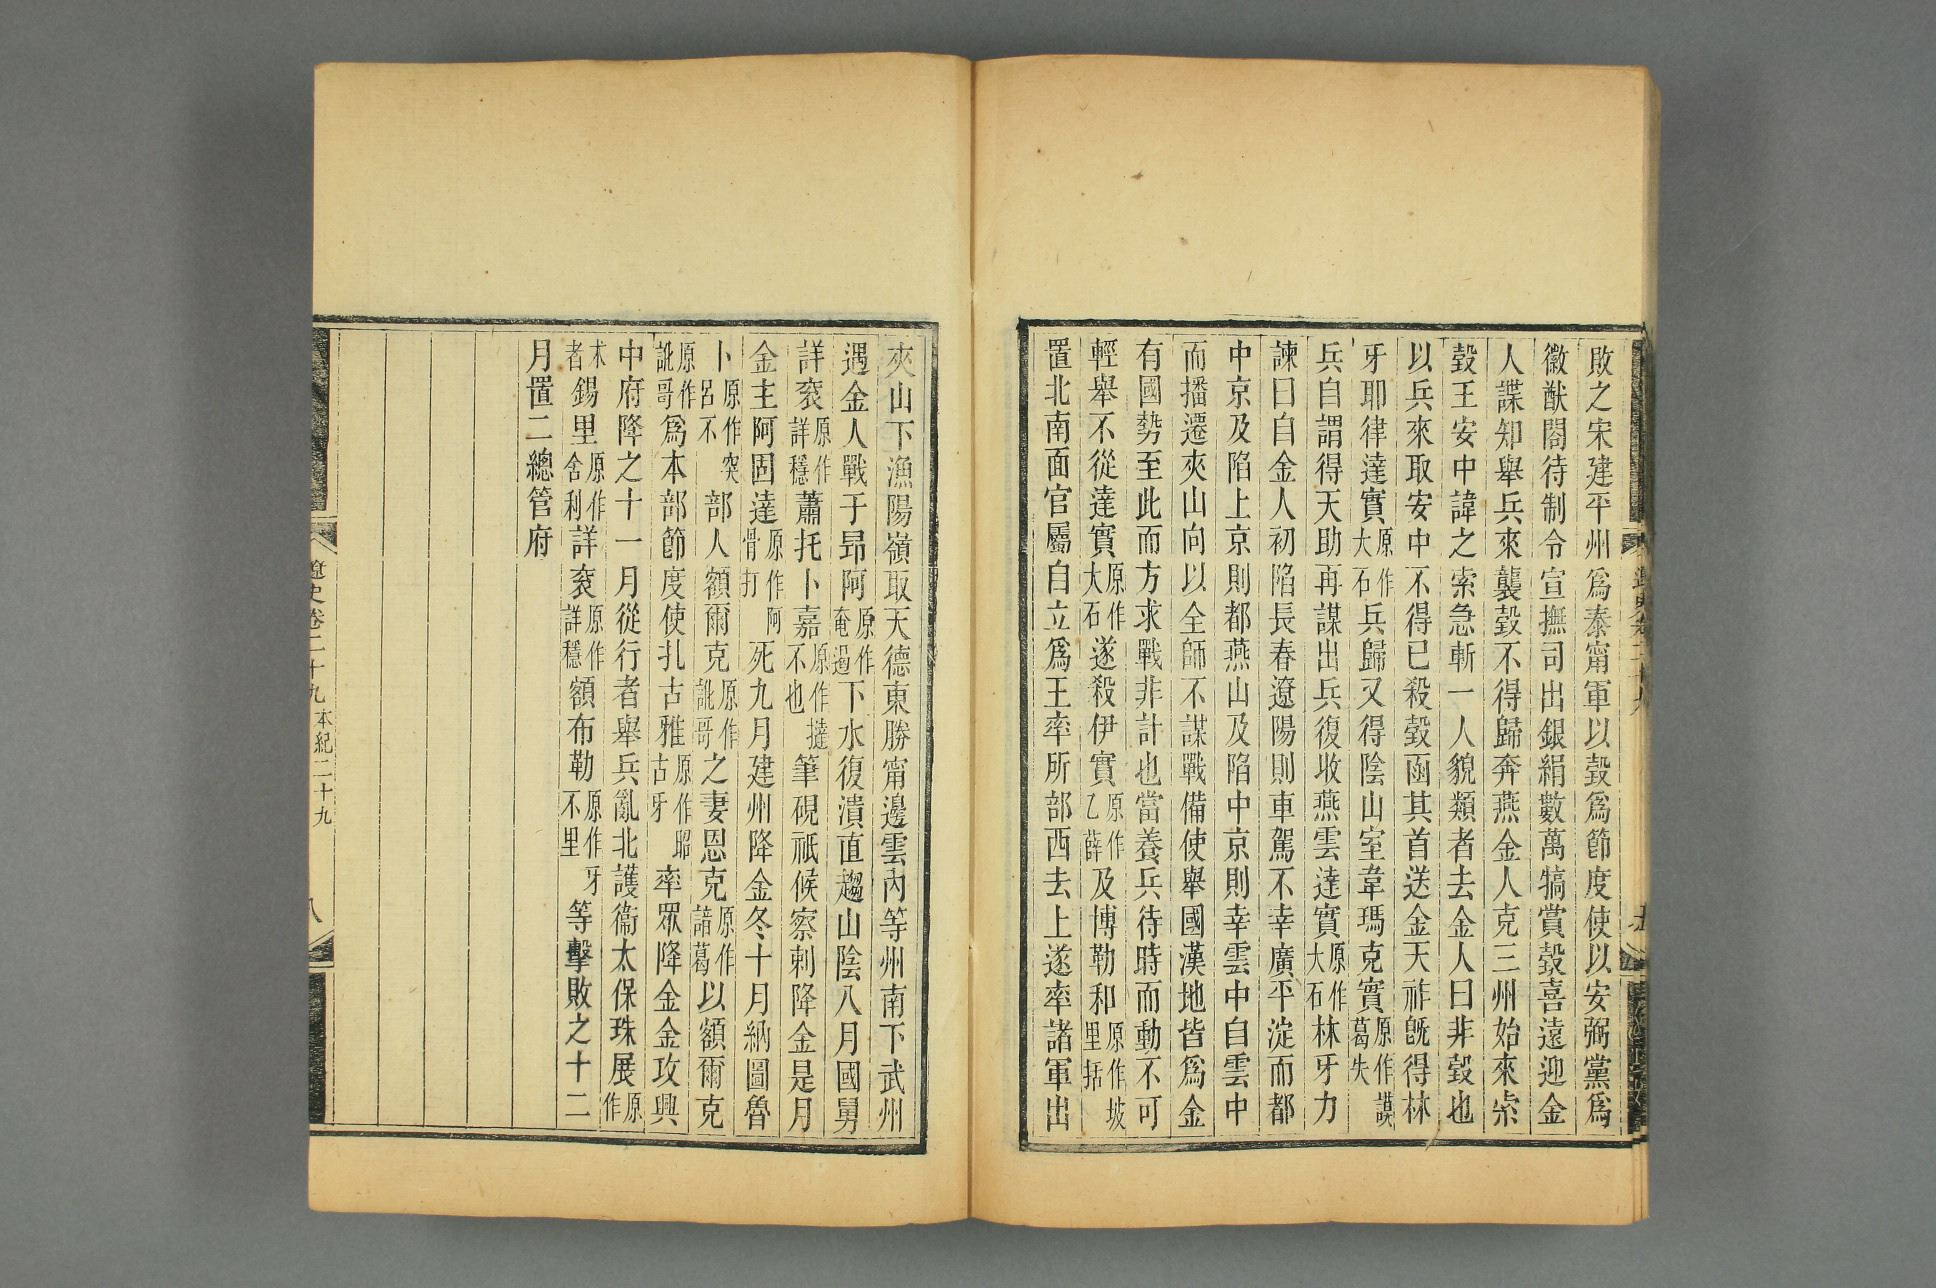 敗之宋建平州爲泰甯軍以瑴爲節度使以安弼黨爲
徽猷閣待制令宣撫司出銀絹數萬犒賞瑴喜遠迎金
人諜知舉兵來襲瑴不得歸奔燕金人克三州始來索
瑴王安中諱之索急斬一人貌類者去金人曰非瑴也
以兵來取安中不得已殺瑴函其首送金天祚旣得林
牙耶律達實原作大石兵歸又得陰山室韋瑪克實原作謨葛失
兵自謂得天助再謀出兵復收燕雲達實原作大石林牙力
諫曰自金人初陷長春遼陽則車駕不幸廣平淀而都
中京及陷上京則都燕山及陷中京則幸雲中自雲中
而播遷夾山向以全師不謀戰備使舉國漢地皆爲金
有國勢至此而方求戰非計也當養兵待時而動不可
輕舉不從達實原作大石遂殺伊實原作乙薛及博勒和原作坡里括
置北南面官屬自立爲王率所部西去上遂率諸軍出
夾山下漁陽嶺取天德東勝甯邊雲內等州南下武州
遇金人戰于昂阿原作奄遏下水復潰直趨山陰八月國舅
詳袞原作詳穩蕭托卜嘉原作撻不也筆硯祗候察剌降金是月
金主阿固達原作阿骨打死九月建州降金冬十月納圖魯
卜原作突呂不部人額爾克原作訛哥之妻恩克原作諳葛以額爾克
原作訛哥爲本部節度使扎古雅原作昭古牙率眾降金金攻興
中府降之十一月從行者舉兵亂北護衞太保珠展原作
朮者錫里原作舍利詳袞原作詳穩額布勒原作牙不里等擊敗之十二
月置二總管府
遼史卷二十九 本紀二十九
八